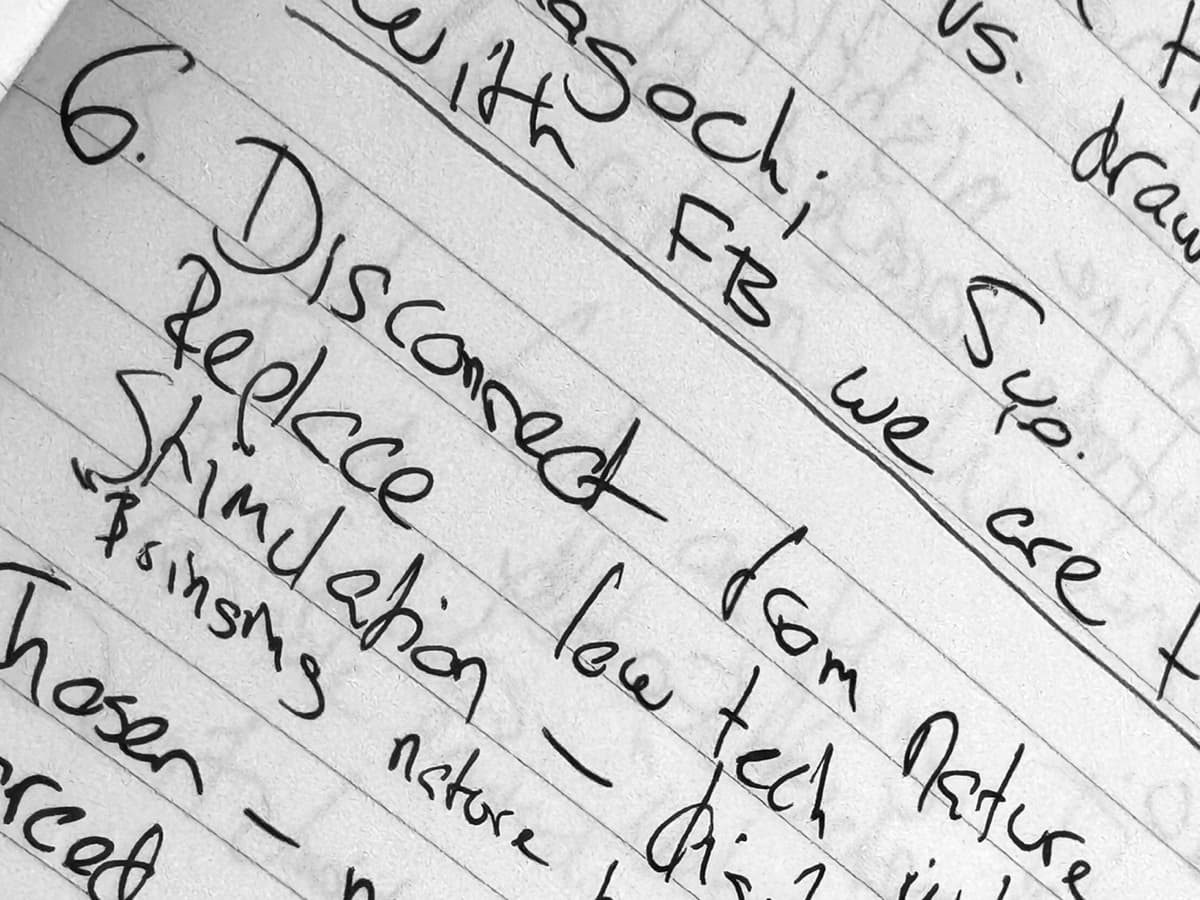 vs. draw
asoch; Sys.
with FB we are
6. Disconnect from Nature
Replace low tech
Stimulation –
"Bringing nature
Thosen –
rced